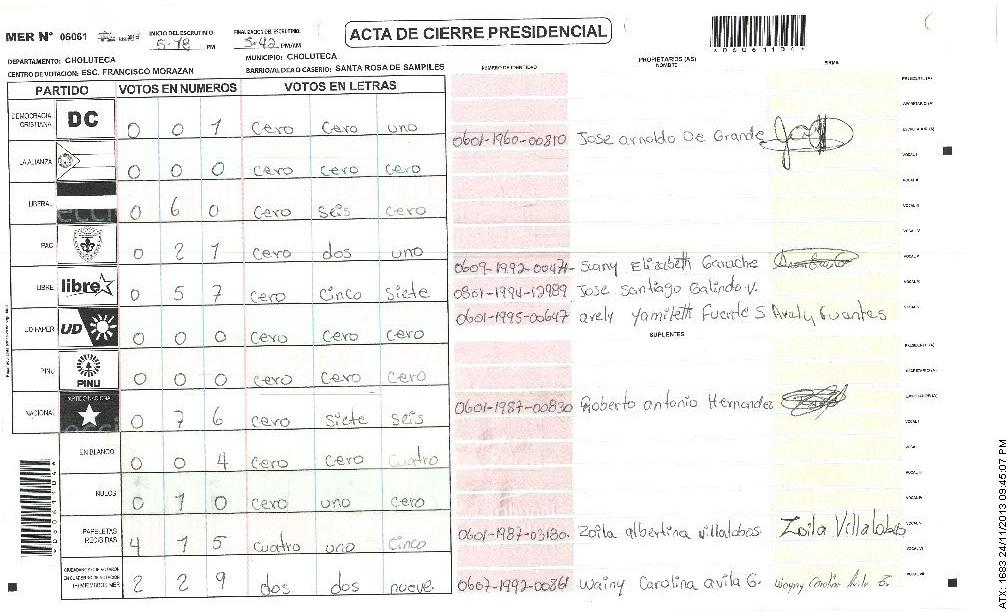 MER N° 06061 INICIO DEL ESCRUTINIO 5:18 PM FINALIZACION DEL ESCRUTINIO 5:42 PM/AM
ACTA DE CIERRE PRESIDENCIAL
DEPARTAMENTO: CHOLUTECA MUNICIPIO: CHOLUTECA
CENTRO DE VOTACION: ESC. FRANCISCO MORAZAN BARRIO/ALDEA O CASERIO: SANTA ROSA DE SAMPILES
PARTIDO VOTOS EN NUMEROS VOTOS EN LETRAS
DEMOCRACIA CRISTIANA DC 0 0 1 cero cero uno
LA ALIANZA 0 0 0 cero cero cero
LIBERAL 0 6 0 cero seis cero
PAC 0 2 1 cero dos uno
LIBRE libre 0 5 7 cero cinco siete
UD-FAPER UD 0 0 0 cero cero cero
PINU PINU 0 0 0 cero cero cero
NACIONAL 0 7 6 cero siete seis
EN BLANCO 0 0 4 cero cero cuatro
NULOS 0 1 0 cero uno cero
PAPELETAS RECIBIDAS 4 1 5 cuatro uno cinco
2 2 9 dos dos nueve
NUMERO DE IDENTIDAD PROPIETARIOS (AS) NOMBRE FIRMA
0601-1960-00810 Jose arnoldo De Grande
0609-1992-00471 Suany Elizabeth Garache
0801-1994-12989 Jose Santiago Galindo V.
0601-1995-00647 arely Yamileth Fuente S Arely Fuentes
SUPLENTES
0601-1987-00830 Roberto antonio Hernandez
0601-1987-03180 Zoila albertina villalobos Zoila Villalobos
0607-1992-00861 Wainy Carolina avila G.
ATX: 1683 24/11/2013 09:45:07 PM